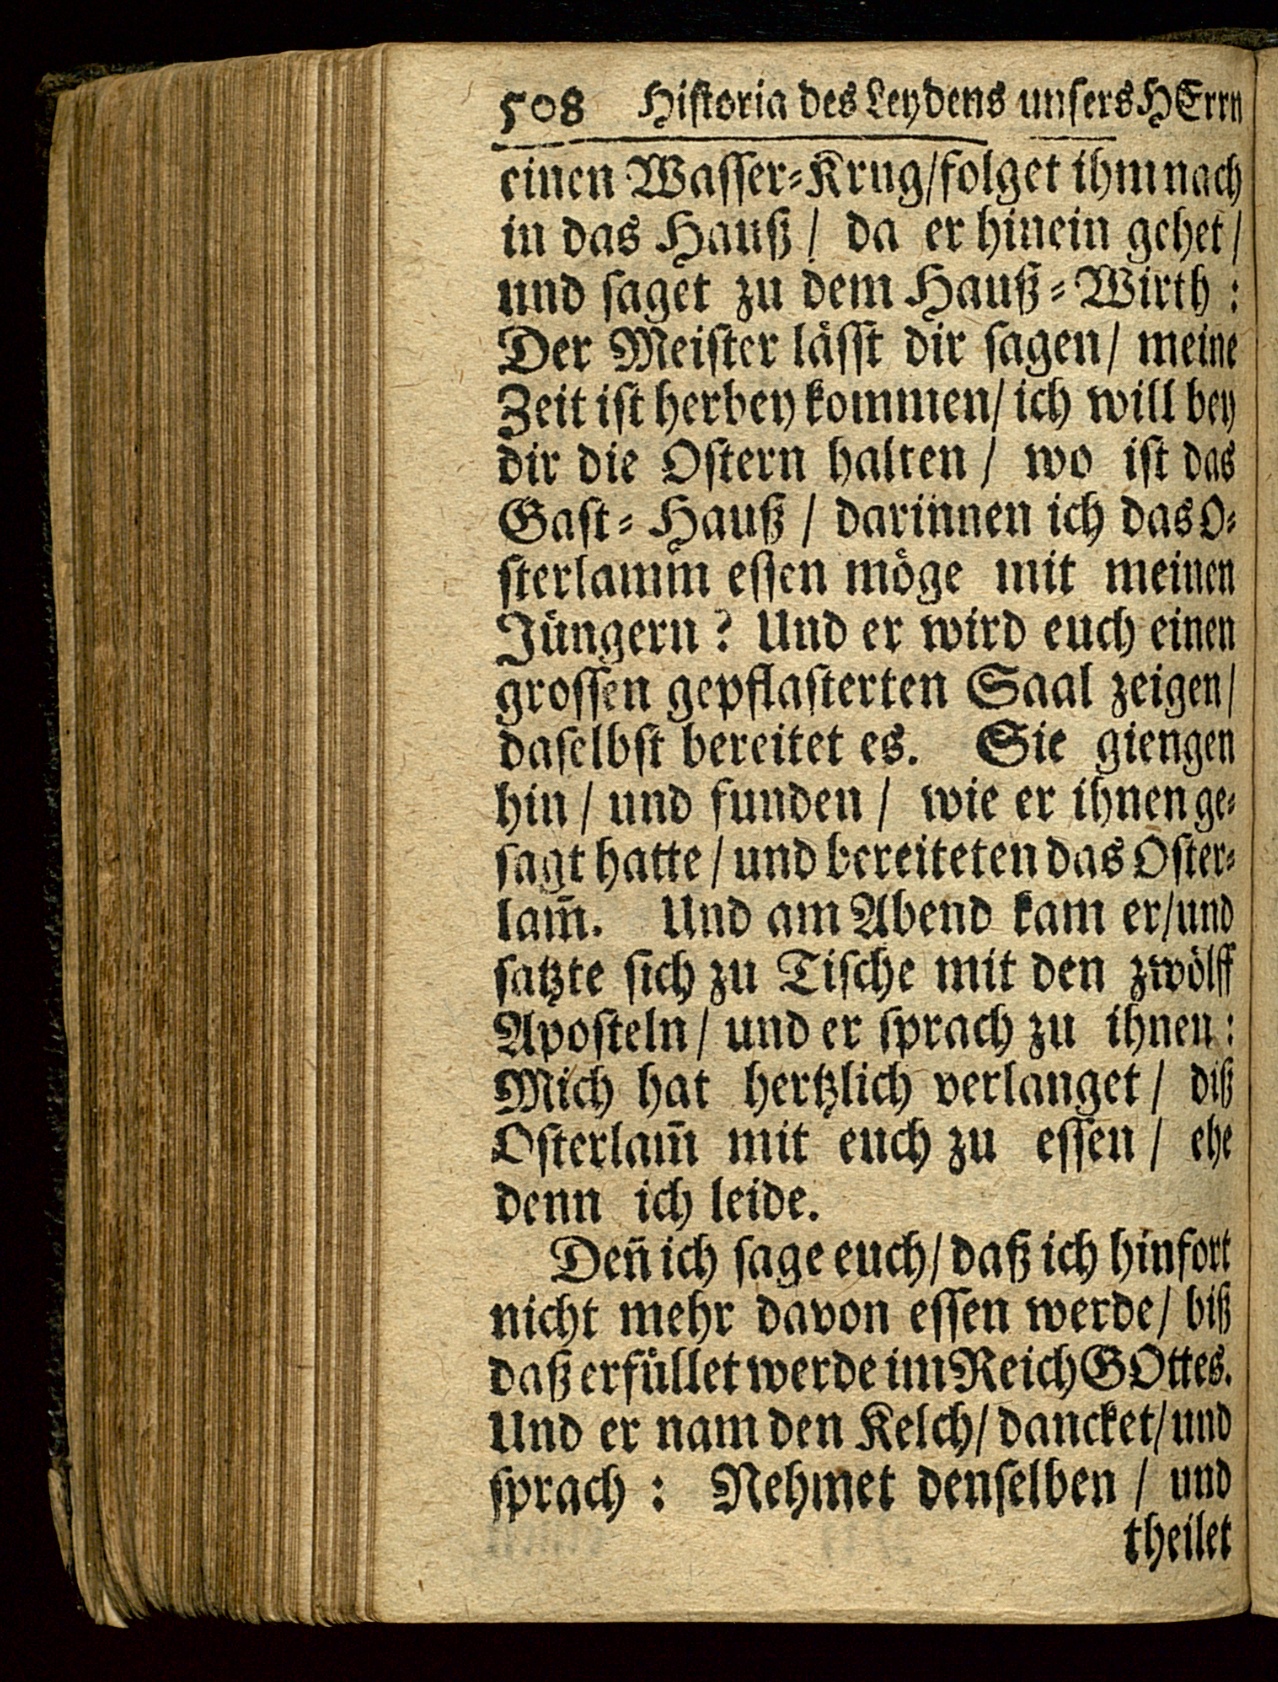 508 Hiſtoria des Leydens unſers HErrn
einen Waſſer⸗Krug/folget ihm nach
in das Hauß / da er hinein gehet /
und ſaget zu dem Hauß⸗Wirth :
Der Meiſter läſſt dir ſagen/ meine
Zeit iſt herbey kommen/ ich will bey
dir die Oſtern halten / wo iſt das
Gaſt⸗ Hauß / darinnen ich das O⸗
ſterlamm eſſen möge mit meinen
Jüngern ? Und er wird euch einen
groſſen gepflaſterten Saal zeigen/
daſelbſt bereitet es. Sie giengen
hin / und funden / wie er ihnen ge⸗
ſagt hatte / und bereiteten das Oſter⸗
lam̃. Und am Abend kam er/und
ſatzte ſich zu Tiſche mit den zwölff
Apoſteln/ und er ſprach zu ihnen :
Mich hat hertzlich verlanget / diß
Oſterlam̃ mit euch zu eſſen / ehe
denn ich leide.
Deñ ich ſage euch/ daß ich hinfort
nicht mehr davon eſſen werde/ biß
daß erfüllet werde im Reich GOttes.
Und er nam den Kelch/ dancket/ und
ſprach : Nehmet denſelben / und
theilet